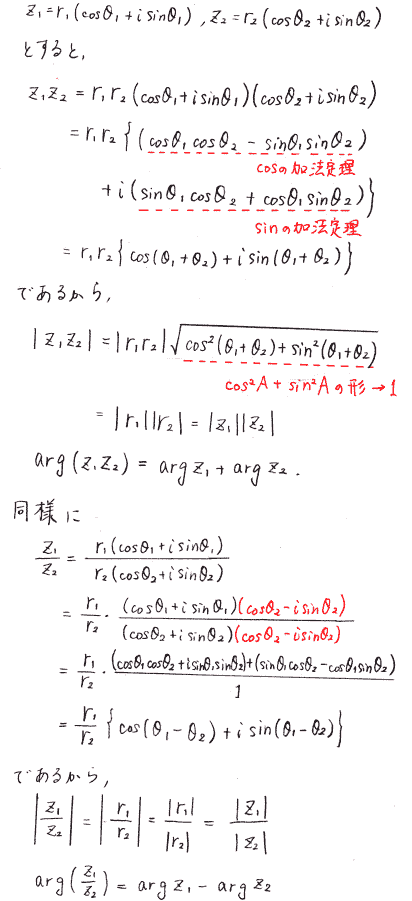 z₁=r₁(cosθ₁+i sinθ₁), z₂=r₂(cosθ₂+i sinθ₂)
とすると,
z₁z₂ = r₁r₂(cosθ₁+i sinθ₁)(cosθ₂+i sinθ₂)
= r₁r₂{(cosθ₁cosθ₂ − sinθ₁sinθ₂)
cosの加法定理
+i(sinθ₁cosθ₂ + cosθ₁sinθ₂)}
sinの加法定理
= r₁r₂{cos(θ₁+θ₂)+i sin(θ₁+θ₂)}
であるから,
|z₁z₂| = |r₁r₂|√(cos²(θ₁+θ₂)+sin²(θ₁+θ₂))
cos²A + sin²A の形 → 1
= |r₁||r₂| = |z₁||z₂|
arg(z₁z₂) = arg z₁ + arg z₂ .
同様に
z₁/z₂ = r₁(cosθ₁+i sinθ₁)/r₂(cosθ₂+i sinθ₂)
= r₁/r₂ · (cosθ₁+i sinθ₁)(cosθ₂−i sinθ₂)/(cosθ₂+i sinθ₂)(cosθ₂−i sinθ₂)
= r₁/r₂ · (cosθ₁cosθ₂+i sinθ₁sinθ₂)+(sinθ₁cosθ₂−cosθ₁sinθ₂)/1
= r₁/r₂ {cos(θ₁−θ₂)+i sin(θ₁−θ₂)}
であるから,
|z₁/z₂| = |r₁/r₂| = |r₁|/|r₂| = |z₁|/|z₂|
arg(z₁/z₂) = arg z₁ − arg z₂